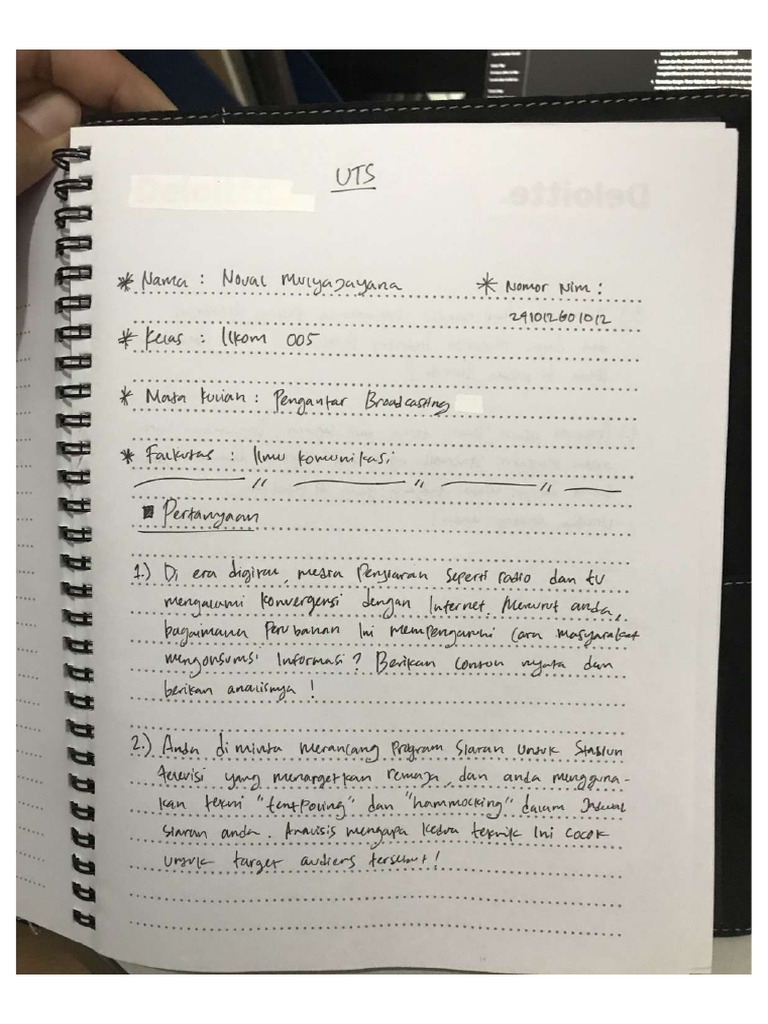 UTS
Deloitte.
* Nama : Noval Mulyajayana
* Nomor Nim :
241012601012
* Kelas : Ilkom 005
* Mata Kuliah : Pengantar Broadcasting
* Falkutas : Ilmu komunikasi
Pertanyaan
1.) Di era digital, media Penyiaran seperti radio dan tv
mengalami konvergensi dengan Internet. Menurut anda,
bagaimana Perubahan Ini mempengaruhi cara masyarakat
mengonsumsi Informasi? Berikan contoh nyata dan
berikan analisnya !
2.) Anda di minta merancang Program Siaran Untuk Stasiun
televisi yang menargetkan remaja, dan anda mengguna-
kan tekni "tentpoling" dan "hammocking" dalam Jadwal
siaran anda. Analisis mengapa kedua teknik Ini cocok
untuk target audiens tersebut !